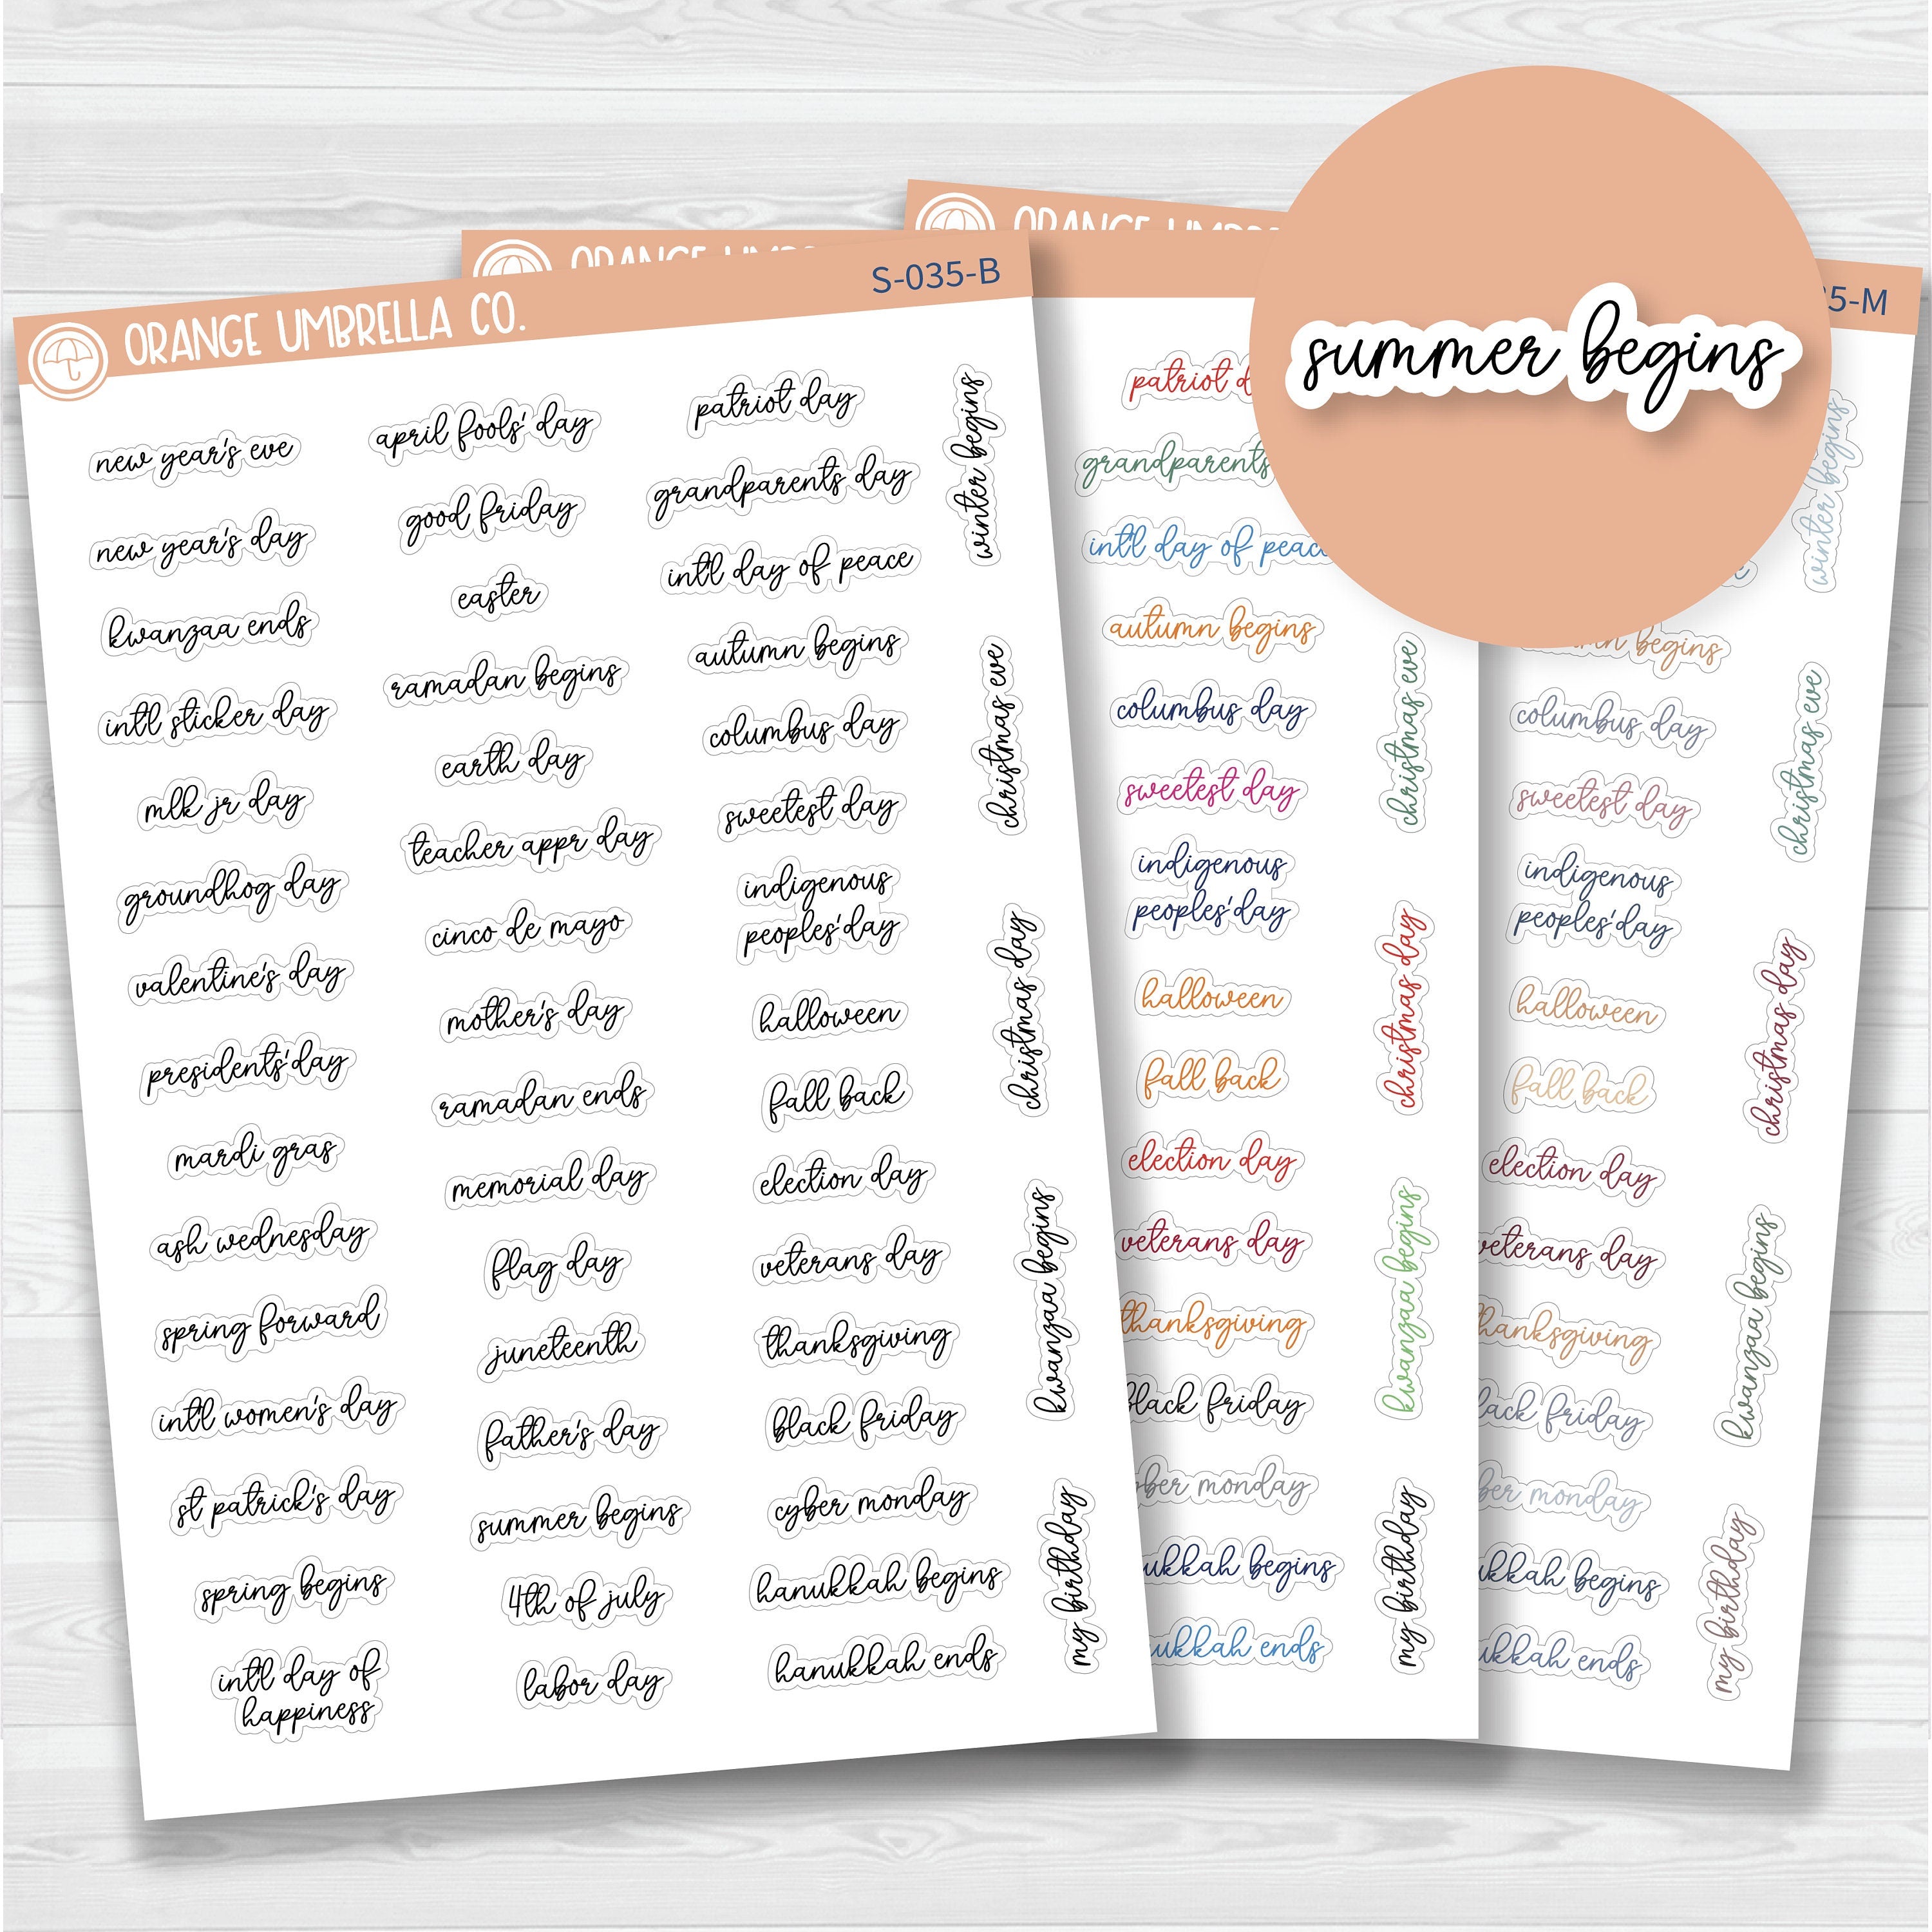 ORANGE UMBRELLA CO.
S-035-B
new year's eve
new year's day
kwanzaa ends
int'l sticker day
mlk jr day
groundhog day
valentine's day
presidents' day
mardi gras
ash wednesday
spring forward
int'l women's day
st patrick's day
spring begins
int'l day of
happiness
april fools' day
good friday
easter
ramadan begins
earth day
teacher appr day
cinco de mayo
mother's day
ramadan ends
memorial day
flag day
juneteenth
father's day
summer begins
4th of july
labor day
patriot day
grandparents day
int'l day of peace
autumn begins
columbus day
sweetest day
indigenous
peoples' day
halloween
fall back
election day
veterans day
thanksgiving
black friday
cyber monday
hanukkah begins
hanukkah ends
winter begins
christmas eve
christmas day
kwanzaa begins
my birthday
ORANGE
patriot
grandparents
int'l day of peace
autumn begins
columbus day
sweetest day
indigenous
peoples' day
halloween
fall back
election day
veterans day
thanksgiving
black friday
monday
begins
ends
christmas eve
christmas day
kwanzaa begins
my birthday
ORANGE
5-M
begins
columbus day
sweetest day
indigenous
peoples' day
halloween
fall back
election day
veterans day
thanksgiving
friday
monday
begins
ends
winter begins
christmas eve
christmas day
kwanzaa begins
my birthday
summer begins